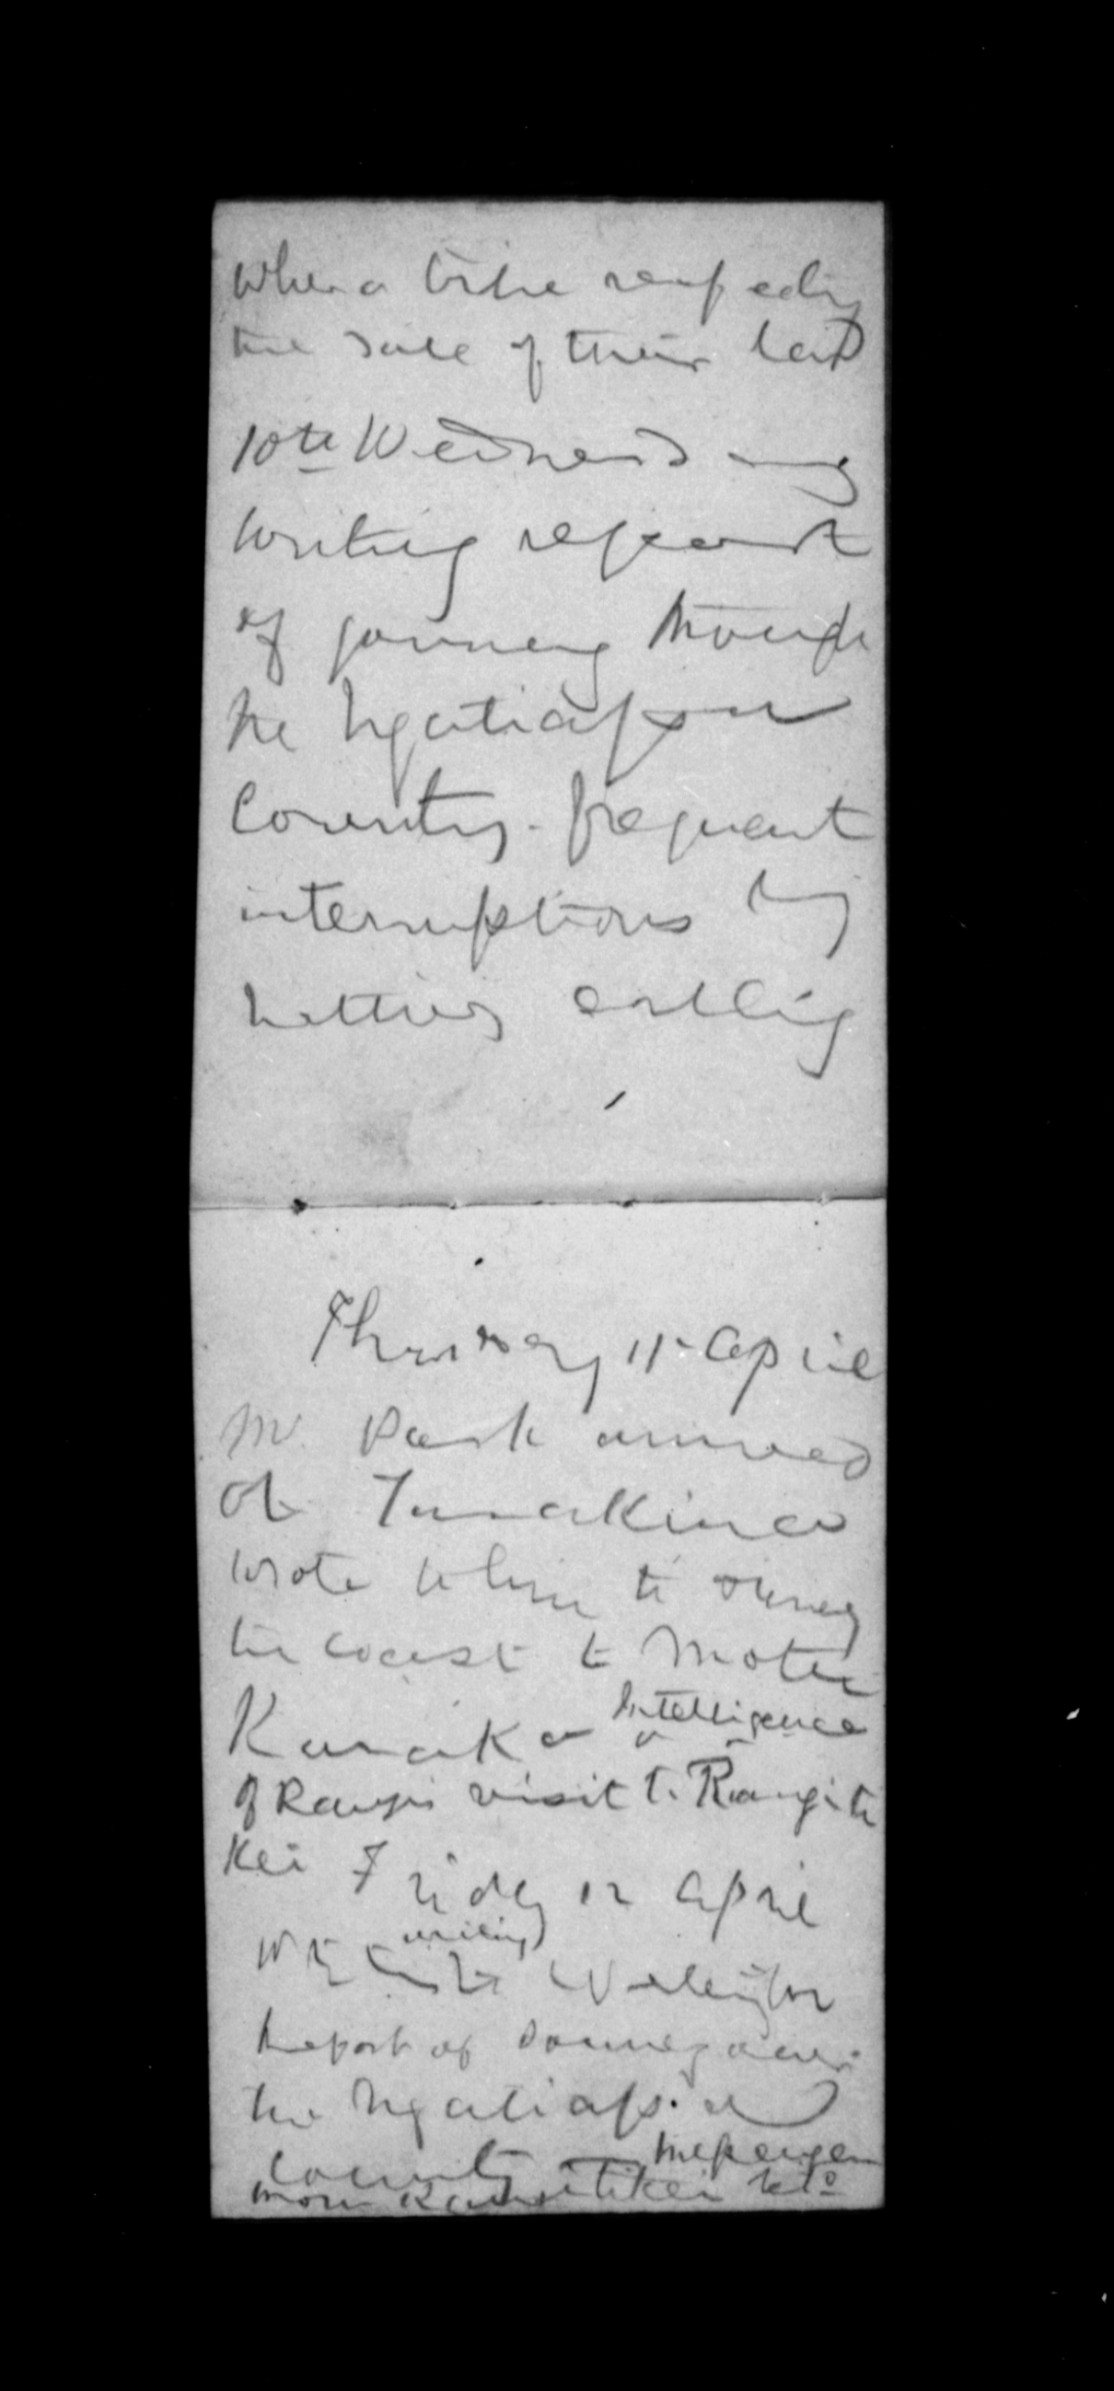 whera tribe respecting
the sale of their land
10th Wednesday
writing report
of journey through
the Ngatiapa
Country. frequent
interruptions by
natives calling
Thursday 11 April
Mr. Park arrived
at Turakina
wrote to him to
the coast to Motu
Karaka Intelligence
of Rangi's visit to Rangiti
kei Friday 12 April
writing
to Wellington
Report of Journey over
the Ngatiapa
Country Messenger
from Rangitikei